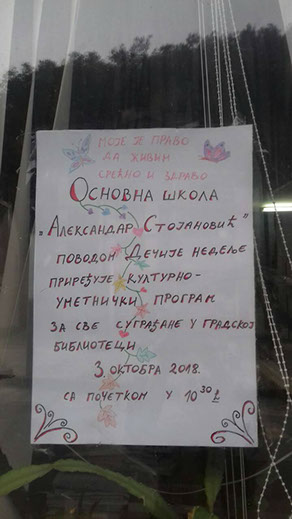 МОЈЕ ЈЕ ПРАВО
ДА ЖИВИМ
СРЕЋНО И ЗДРАВО
ОСНОВНА ШКОЛА
„АЛЕКСАНДАР СТОЈАНОВИЋ"
ПОВОДОМ ДЕЧИЈЕ НЕДЕЉЕ
ПРИРЕЂУЈЕ КУЛТУРНО-
УМЕТНИЧКИ ПРОГРАМ
ЗА СВЕ СУГРАЂАНЕ У ГРАДСКОЈ
БИБЛИОТЕЦИ
3. ОКТОБРА 2018.
СА ПОЧЕТКОМ У 10 30 h